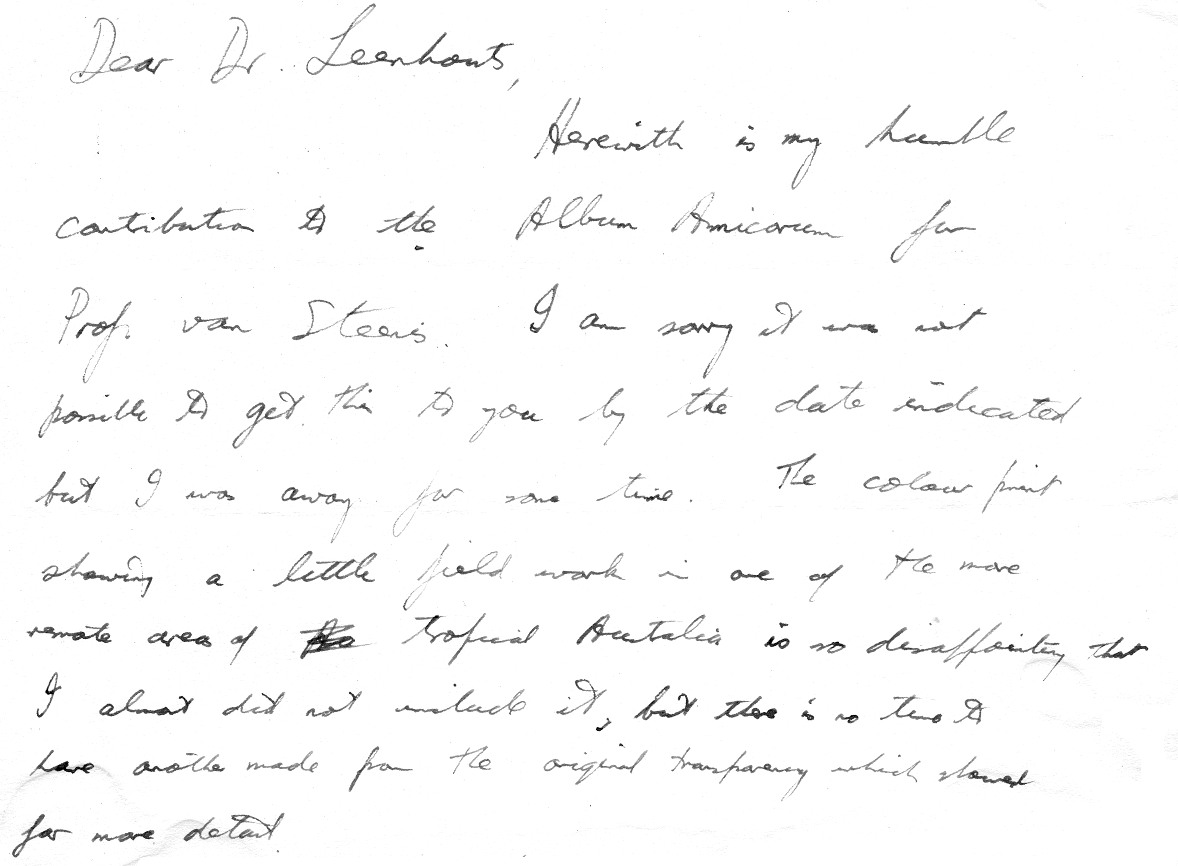 Dear Dr. Leenhouts,
Herewith is my humble
contribution to the Album Amicorum for
Prof. van Steenis. I am sorry it was not
possible to get this to you by the date indicated
but I was away for some time. The colour print
showing a little field work in one of the more
remote areas of tropical Australia is so disappointing that
I almost did not include it, but there is no time to
have another made from the original transparency which showed
far more detail.